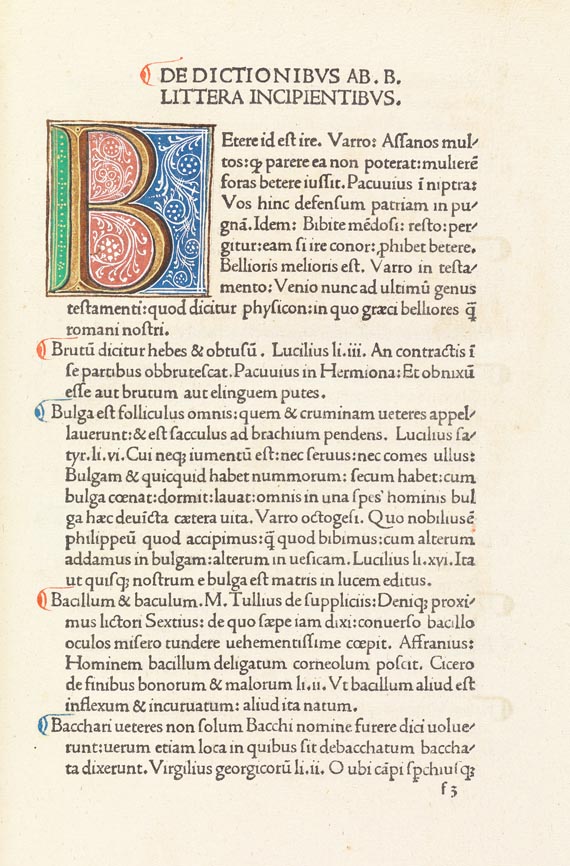 DE DICTIONIBVS AB. B.
LITTERA INCIPIENTIBVS.
BEtere id est ire. Varro: Assanos mul⸗
tos:ꝙ parere ea non poterat:mulierē
foras betere iussit. Pacuuius ī niptra:
Vos hinc defensum patriam in pu⸗
gnā. Idem: Bibite mēdosi: resto:per⸗
gitur:eam si ire conor:ꝓhibet betere.
Bellioris melioris est. Varro in testa⸗
mento:Venio nunc ad ultimū genus
testamenti:quod dicitur physicon:in quo græci belliores q̄
romani nostri.
Brutū dicitur hebes & obtusū. Lucilius li.iii. An contractis ī
se partibus obbrutescat. Pacuuius in Hermiona: Et obnixū
esse aut brutum aut elinguem putes.
Bulga est folliculus omnis:quem & cruminam ueteres appel⸗
lauerunt:& est sacculus ad brachium pendens. Lucilius sa⸗
tyr. li. vi. Cui neq; iumentū est:nec seruus:nec comes ullus:
Bulgam & quicquid habet nummorum: secum habet:cum
bulga cœnat:dormit:lauat:omnis in una spes' hominis bul
ga hæc deuīcta cætera uita. Varro octogesi. Quo nobiliusē
philippeū quod accipimus:q̄ quod bibimus:cum alterum
addamus in bulgam:alterum in uesicam. Lucilius li. xvi. Ita
ut quisq; nostrum e bulga est matris in lucem editus.
Bacillum & baculum. M. Tullius de suppliciis: Deniq; proxi⸗
mus lictori Sextius: de quo sæpe iam dixi:conuerso bacillo
oculos misero tundere uehementissime cœpit. Affranius:
Hominem bacillum deligatum corneolum poscit. Cicero
de finibus bonorum & malorum li. ii. Vt bacillum aliud est
inflexum & incuruatum: aliud ita natum.
Bacchari ueteres non solum Bacchi nomine furere dici uolue⸗
runt:uerum etiam loca in quibus sit debacchatum baccha⸗
ta dixerunt. Virgilius georgicorū li. ii. O ubi cāpi spchiusq;
f 3